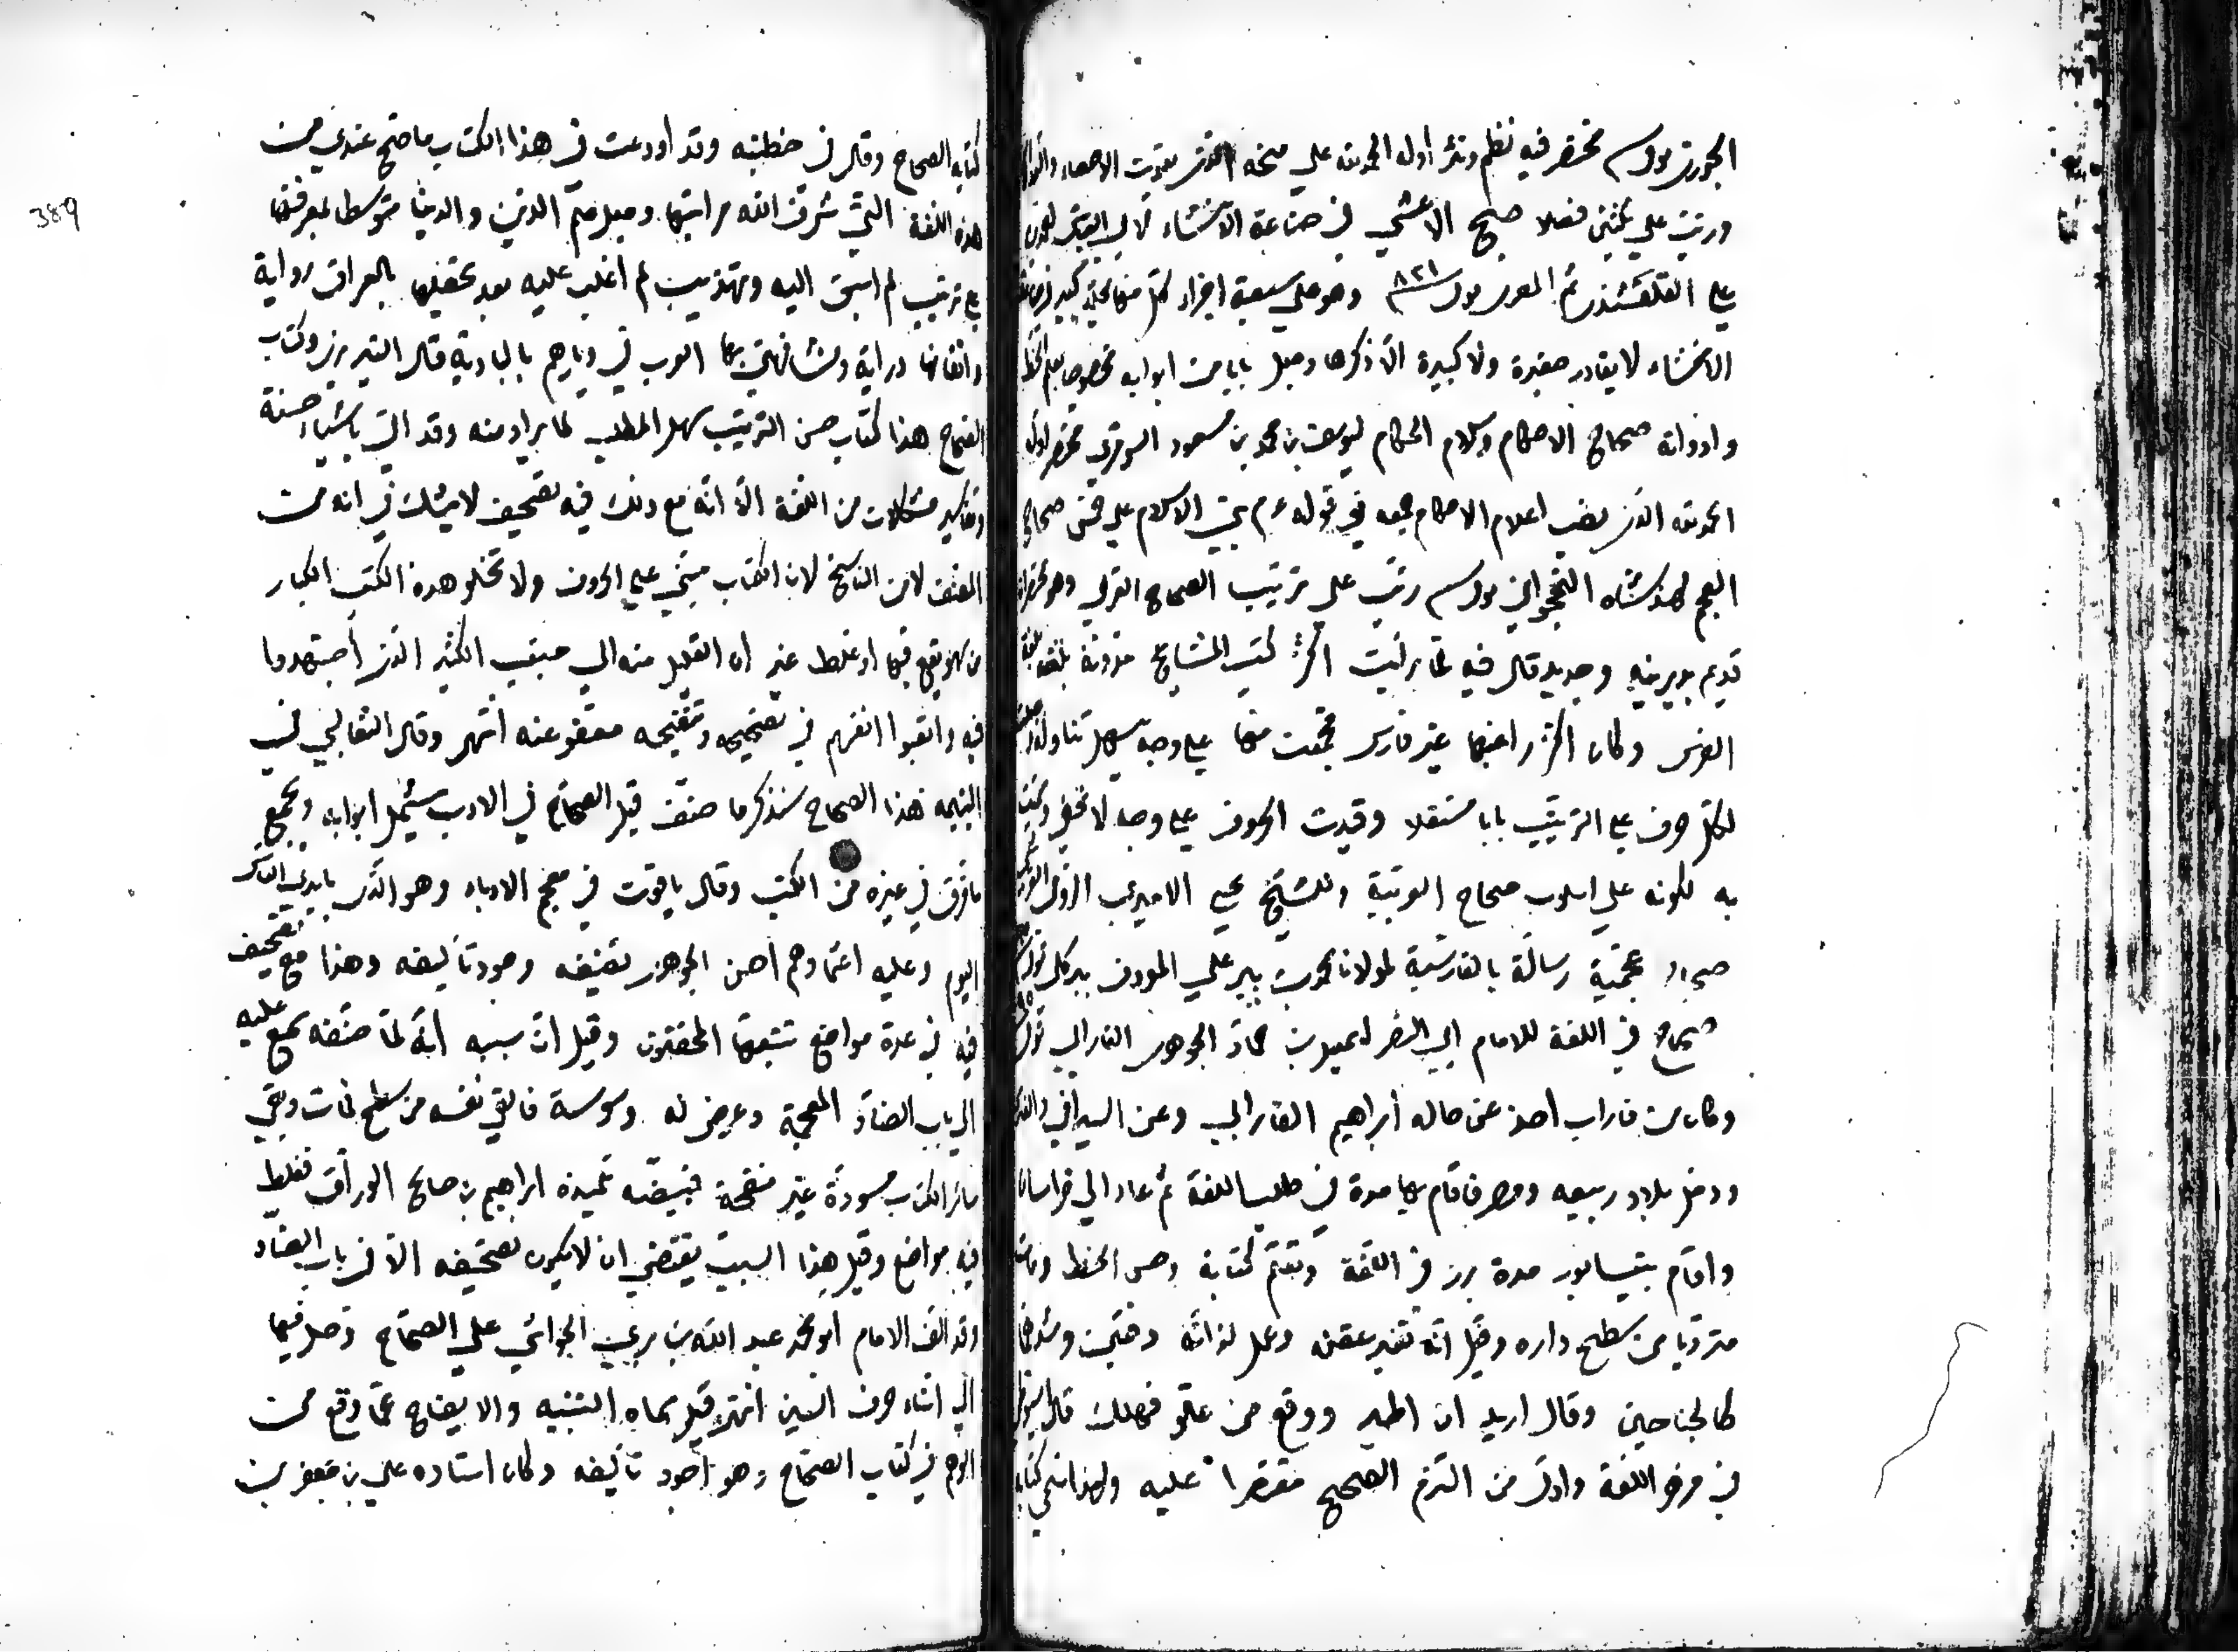 الجوزي مختصر فيه نظم ونثر اوله الحمد لله على منحه
ورتبت على ثلثين فصلا صبح الاعشي في صناعة الانشاء لابي العباس احمد بن
علي القلقشندي ثم المصري ٨٢١ وهو على سبعة اجزاء كل منها مجلد كبير
الانشاء لا يغادر صغيرة ولا كبيرة الا ذكرها وجعل بابا من ابوابه مخصوصا بعلم الخط
وادواته صحاح الاحكام وكلام الحكام ليوسف بن محمد بن مسعود مختصر اوله
الحمد لله الذي نصب اعلام الاحكام جمعه في قوله عم بني الاسلام على خمس صحاح
العجم لهندوشاه النخجواني رتب على ترتيب الصحاح العربي وهو
قديم وجديد قال فيه لما رأيت اكثر كتب المشايخ مدونة بلغة
الفرس وكان اكثر راغبيها غير فارس فجمعت منها على وجه سهل تناوله
لكل حرف على الترتيب بابا مستقلا وقيدت الحروف على وجه لا تخفي
به لكونه على اسلوب صحاح العربية وللشيخ
صحاح عجمية رسالة بالفارسية لمولانا محمد بن بير علي المعروف ببركلي
صحاح في اللغة للامام ابي النصر اسمعيل بن حماد الجوهري الفارابي
وكان من فاراب اخذ عن خاله ابراهيم الفارابي وعن السيرافي
ودخل بلاد ربيعه ومضر فاقام بها مدة في طلب اللغة ثم عاد الي خراسان
واقام بنيسابور مدة برز في اللغة وتعلم كتابة وحسن الخط ومات
مترديا من سطح داره وقيل انه تغير عقله وعمل له دفتين وشدهما
كالجناحين وقال اريد ان اطير ووقع من علو فهلك قال السيوطي
في مزهر اللغة واول من التزم الصحيح مقتصرا عليه ولهذا سمي كتابه
كتابه الصحاح وقال في خطبته وقد اودعت في هذا الكتاب ما صح عندي من
هذه اللغة التي شرف الله مراتبها وجعل علم الدين والدنيا متوسطا بمعرفتها
على ترتيب لم اسبق اليه وتهذيب لم اغلب عليه بعد تحصيلها بالعراق رواية
واتقانها دراية ومشافهتي بها العرب في ديارهم بالبادية قال التبريزي وكتاب
الصحاح هذا كتاب حسن الترتيب سهل المطلب لما يراد منه وقد اتي باشياء حسنة
وتفاسير مشكلات من اللغة الا انه مع ذلك فيه تصحيف لا يشك في انه من
المصنف لا من الناسخ لان الكتاب مبني على الحروف ولا تخلو هذه الكتب الكبار
من سهو يقع فيها او غلط غير ان القليل منه الي جنب الكثير الذي اجتهدوا
فيه واتعبوا انفسهم في تصحيحه وتنقيحه معفو عنه انتهى وقال الثعالبي في
اليتيمه هذا الصحاح سيد كل ما صنف قبل الصحاح في الادب يشمل ابوابه ويجمع
ما فرق في غيره من الكتب وقال ياقوت في معجم الادباء وهو الذي بايدي الناس
اليوم وعليه اعتمادهم احسن الجوهري تصنيفه وجود تأليفه وهذا مع تصحيف
فيه في عدة مواضع تتبعها المحققون وقيل ان سببه انه لما صنفه سمع عليه
الي باب الضاد المعجمة وعرض له وسوسة فالقي نفسه من سطح فمات وبقي
سائر الكتاب مسودة غير منقحة فبيضه تلميذه ابراهيم بن صالح الوراق فغلط
فيه مواضع وقيل هذا السبب يقتضي ان لا يكون تصحيفه الا في باب الضاد
وقد الف الامام ابو محمد عبد الله بن بري الحواشي علي الصحاح وصل فيها
الي اثناء حرف الشين انتهى قيل سماه التنبيه والايضاح عما وقع من
الوهم في كتاب الصحاح وهو اجود تأليفه وكان استاده علي بن جعفر بن
389